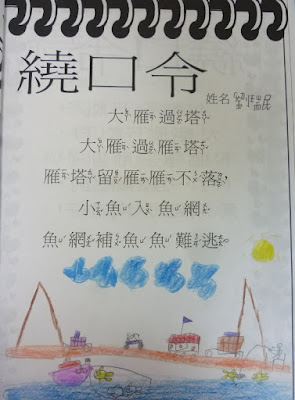 繞口令
姓名
大雁過塔
大雁過雁塔
雁塔留雁雁不落,
小魚入魚網
魚網補魚魚難逃。